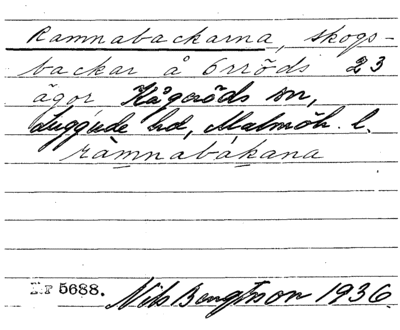 Ramnabackarna, skogs-
backar å Orröds 23
ägor, Kågeröds sn,
Luggude hd, Malmöh. l.
ràmnabákana
Nr 5688. Nils Bengtsson 1936.